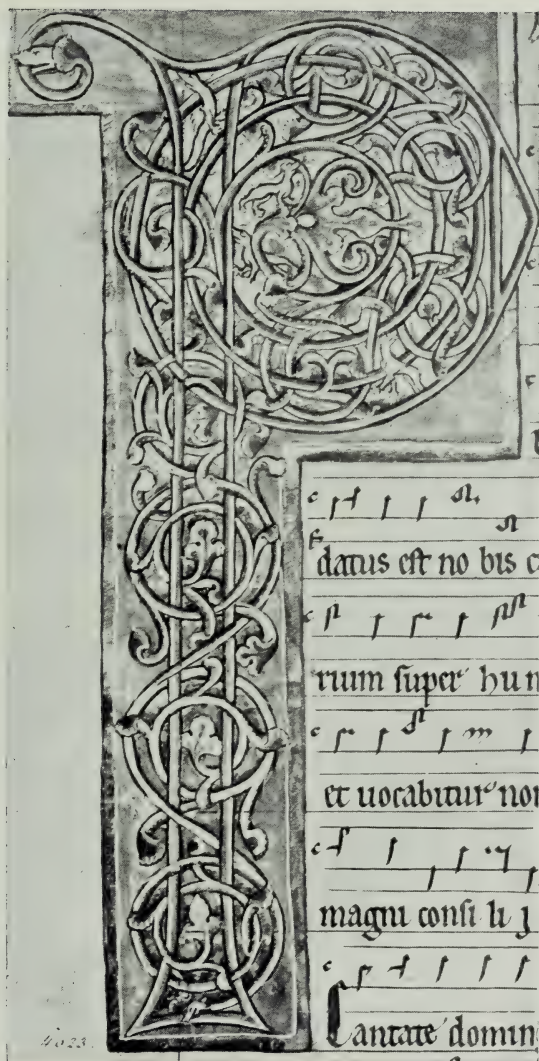 P
datus est no bis
rium super hu
et uocabitur
magni consi li j
Cantate domin
4023.